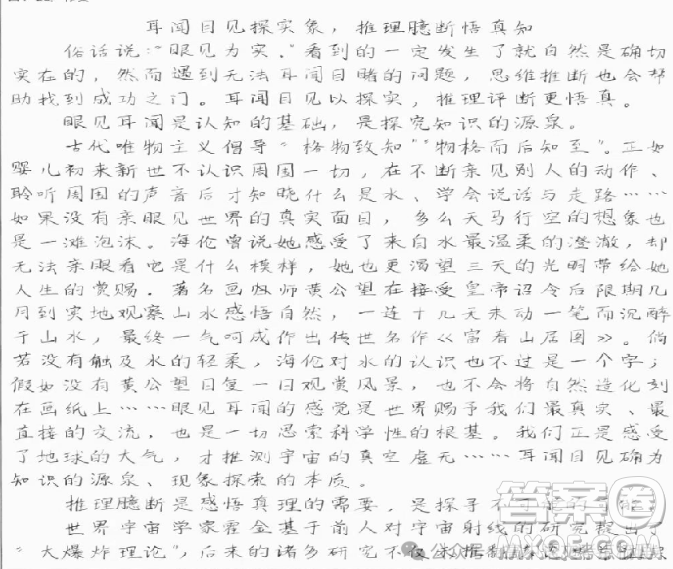 耳闻目见探实象，推理臆断悟真知
俗话说："眼见为实。"看到的一定发生了就自然是确切
实在的，然而遇到无法耳闻目睹的问题，思维推断也会帮
助找到成功之门。耳闻目见以探实，推理评断更悟真。
眼见耳闻是认知的基础，是探究知识的源泉。
古代唯物主义倡导"格物致知""物格而后知至"。正如
婴儿初来新世不认识周围一切，在不断亲见别人的动作、
聆听周围的声音后才知晓什么是水、学会说话与走路……
如果没有亲眼见世界的真实面目，多么天马行空的想象也
是一滩泡沫。海伦曾说她感受了来自水最温柔的澄澈，却
无法亲眼看它是什么模样，她也更渴望三天的光明带给她
人生的赏赐。著名画师黄公望在接受皇帝诏令后限期几
月到实地观察山水感悟自然，一连十几天未动一笔而沉醉
于山水，最终一气呵成作出传世名作《富春山居图》。倘
若没有触及水的轻柔，海伦对水的认识也不过是一个字；
假如没有黄公望日复一日观赏风景，也不会将自然造化刻
在画纸上……眼见耳闻的感觉是世界赐予我们最真实、最
直接的交流，也是一切思索科学性的根基。我们正是感受
了地球的大气，才推测宇宙的真空虚无……耳闻目见确为
知识的源泉、现象探索的本质。
推理臆断是感悟真理的需要，是探寻不
世界宇宙学家霍金基于前人对宇宙射线的研究提出
"大爆炸理论"，后来的诸多研究不仅
答案圈
MXQE.COM
公众号